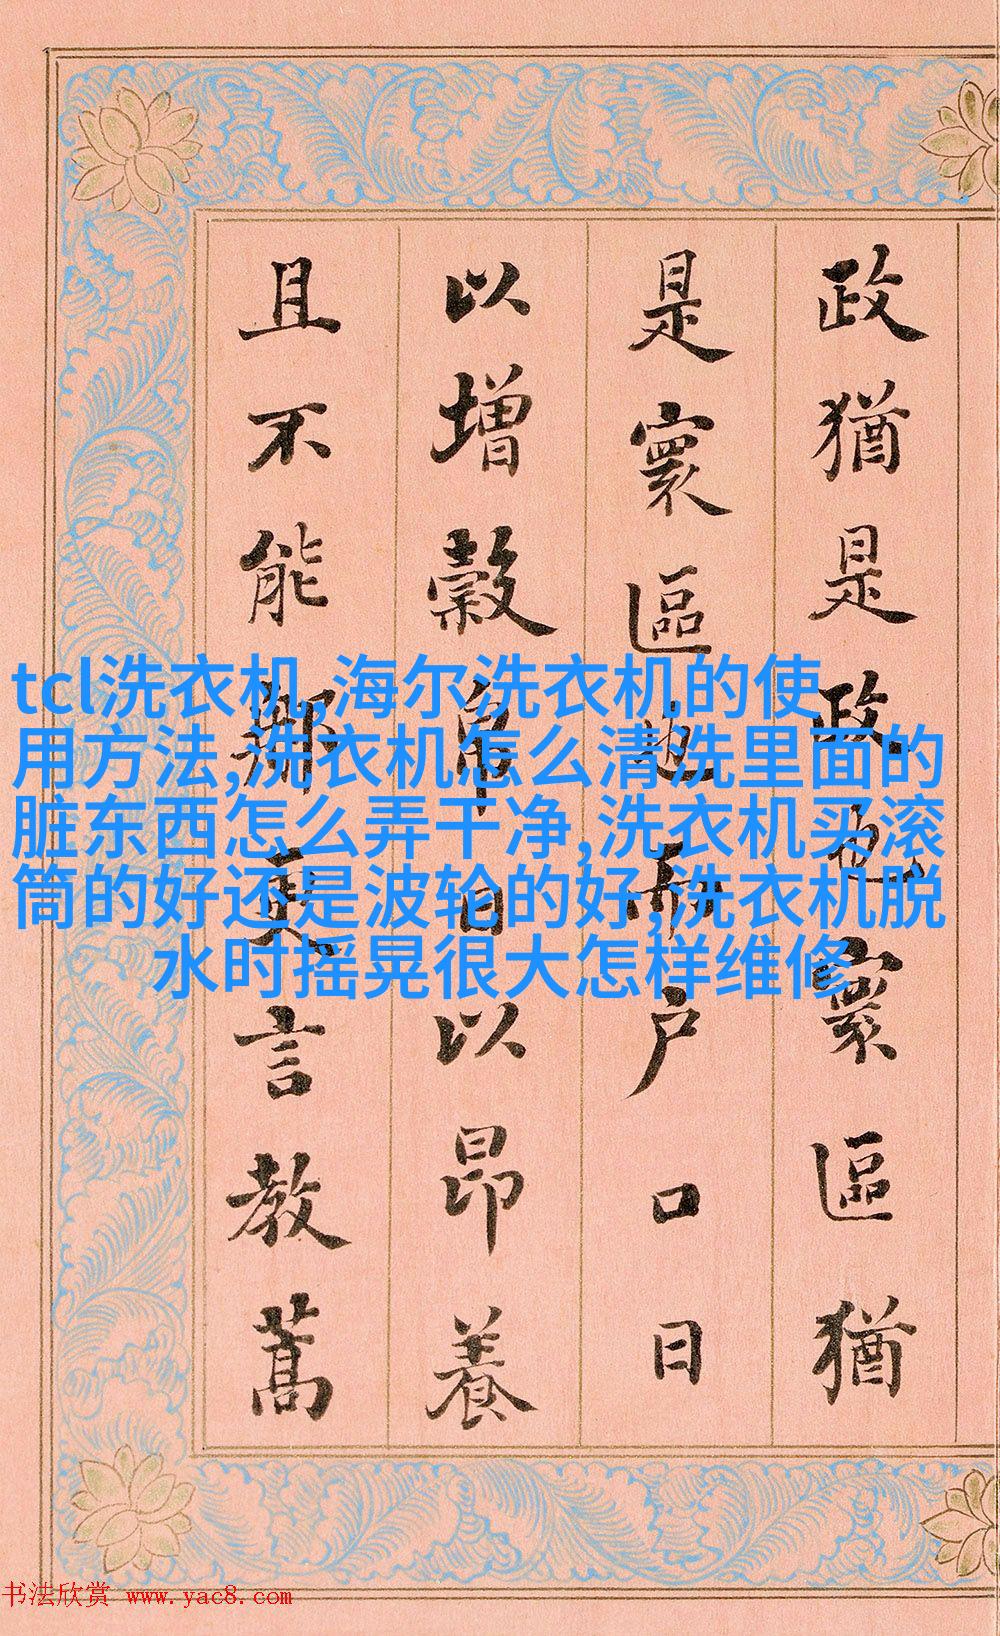 政猶是政也寰區猶
是寰區也而户口日
以增穀帛日以昂養
且不能那更言教蒿
tcl洗衣机,海尔洗衣机的使
用方法,洗衣机怎么清洗里面的
脏东西怎么弄干净,洗衣机买滚
筒的好还是波轮的好,洗衣机脱
水时摇晃很大怎样维修
书法欣赏 www.yac8.com